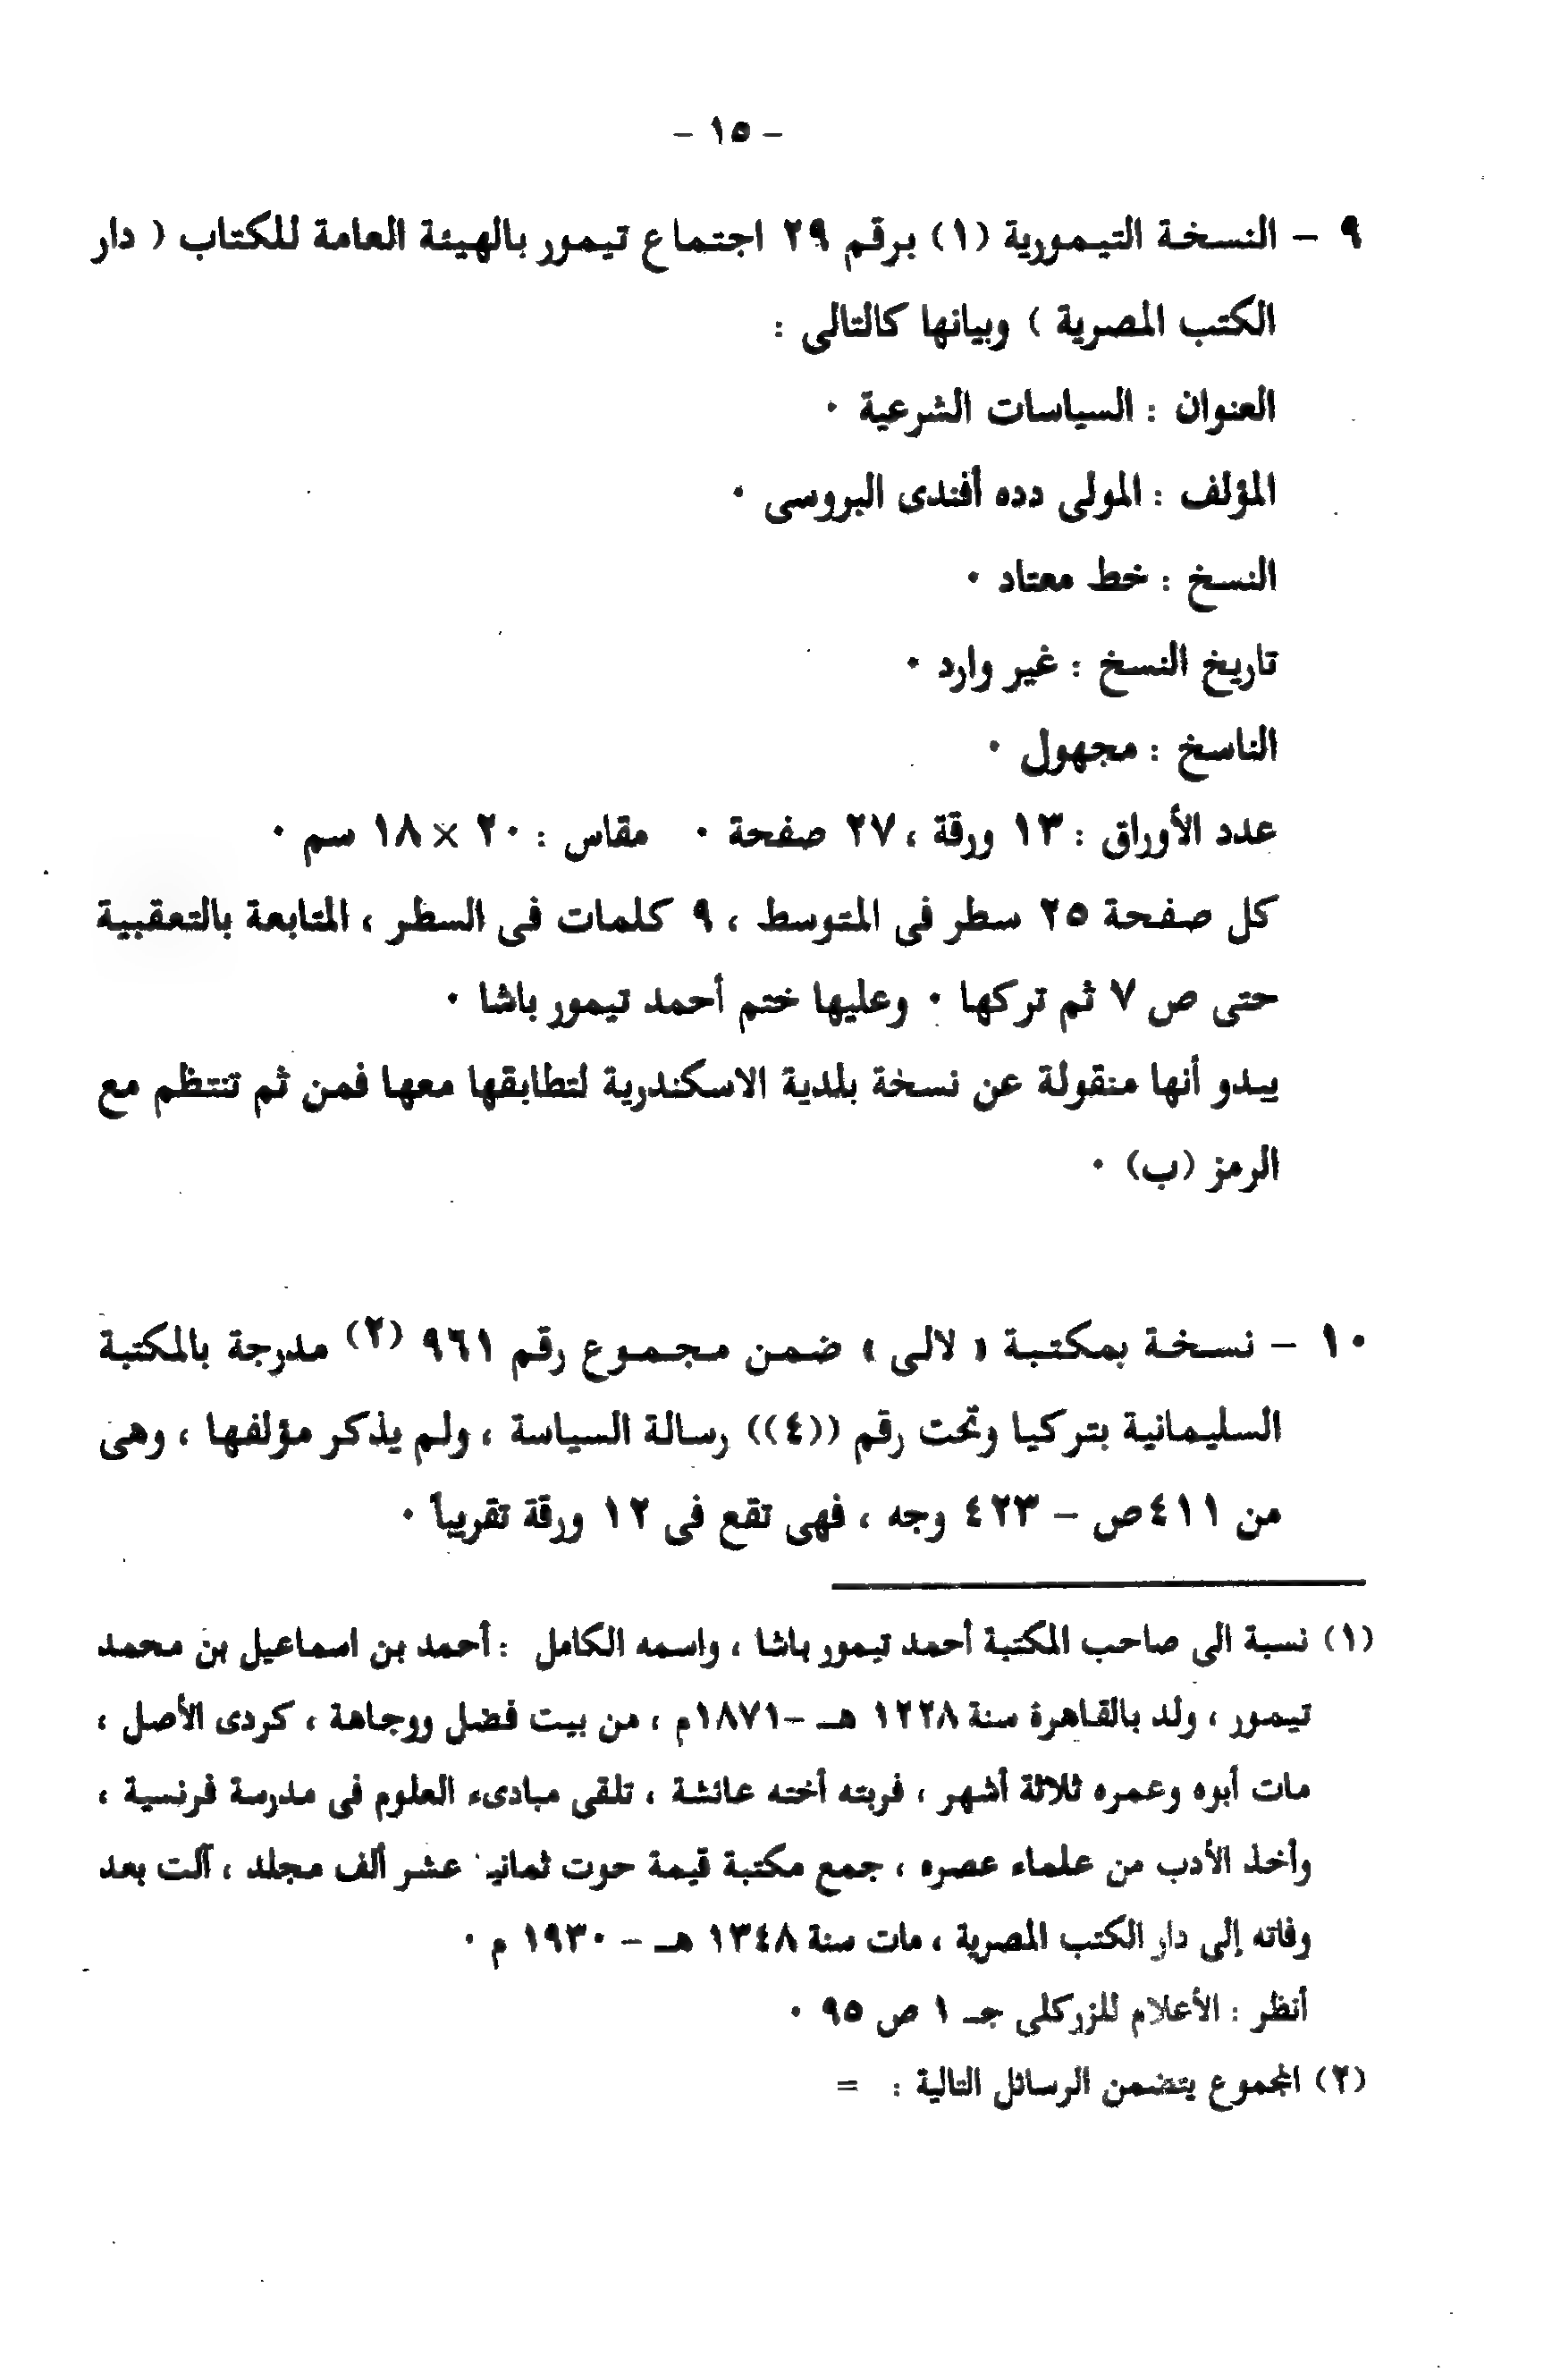 - ١٥ -
٩ - النسخة التيمورية (١) برقم ٢٩ اجتماع تيمور بالهيئة العامة للكتاب ( دار
الكتب المصرية ) وبيانها كالتالى :
العنوان : السياسات الشرعية ٠
المؤلف : المولى دده أفندى البروسى ٠
النسخ : خط معتاد ٠
تاريخ النسخ : غير وارد ٠
الناسخ : مجهول ٠
عدد الأوراق : ١٣ ورقة ، ٢٧ صفحة ٠ مقاس : ٢٠ × ١٨ سم ٠
كل صفحة ٢٥ سطر فى المتوسط ، ٩ كلمات فى السطر ، المتابعة بالتعقبية
حتى ص ٧ ثم تركها ٠ وعليها ختم أحمد تيمور باشا ٠
يبدو أنها منقولة عن نسخة بلدية الاسكندرية لتطابقها معها فمن ثم تنتظم مع
الرمز (ب) ٠
١٠ - نسخة بمكتبة « لالى » ضمن مجموع رقم ٩٦١ (٢) مدرجة بالمكتبة
السليمانية بتركيا وتحت رقم ((٤)) رسالة السياسة ، ولم يذكر مؤلفها ، وهى
من ٤١١ص - ٤٢٣ وجه ، فهى تقع فى ١٢ ورقة تقريباً ٠
(١) نسبة الى صاحب المكتبة أحمد تيمور باشا ، واسمه الكامل : أحمد بن اسماعيل بن محمد
تيمور ، ولد بالقاهرة سنة ١٢٢٨ هـ -١٨٧١م ، من بيت فضل ووجاهة ، كردى الأصل ،
مات أبوه وعمره ثلاثة أشهر ، فربته أخته عائشة ، تلقى مبادىء العلوم فى مدرسة فرنسية ،
وأخذ الأدب من علماء عصره ، جمع مكتبة قيمة حوت ثمانية عشر ألف مجلد ، آلت بعد
وفاته إلى دار الكتب المصرية ، مات سنة ١٣٤٨ هـ - ١٩٣٠ م ٠
أنظر : الأعلام للزركلى جـ ١ ص ٩٥ ٠
(٢) المجموع يتضمن الرسائل التالية : =